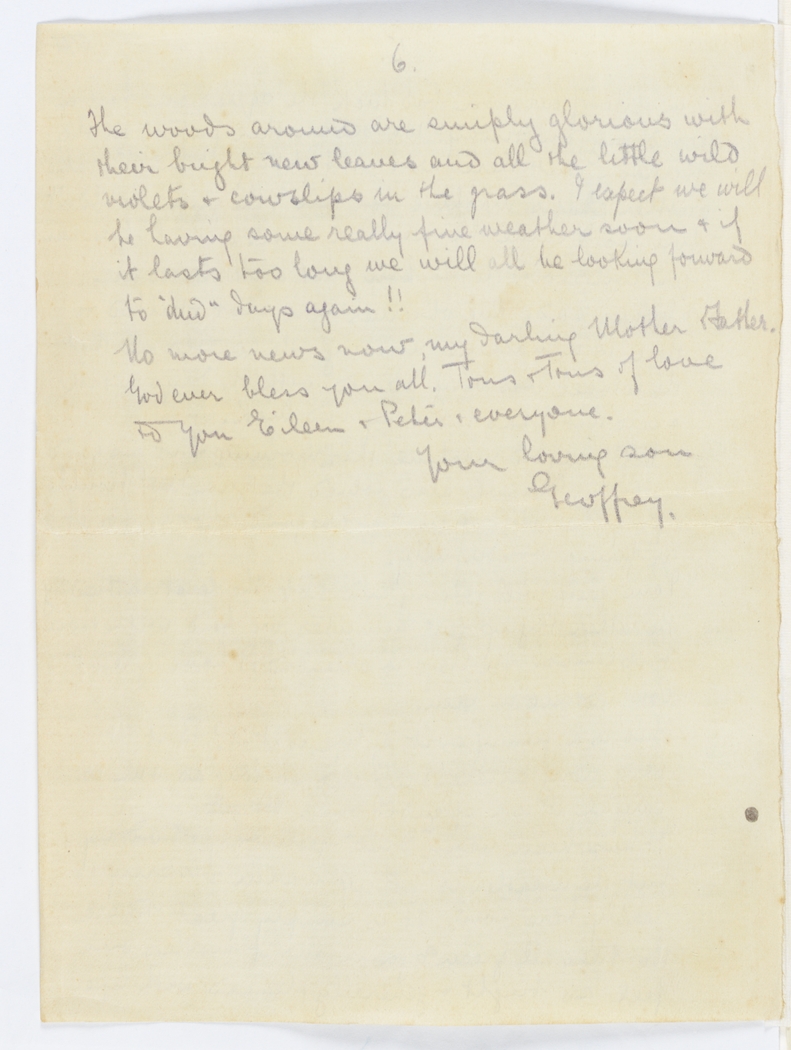 6.
The woods around are simply glorious with
their bright new leaves and all the little wild
violets & cowslips in the grass. I expect we will
be having some really fine weather soon & if
it lasts too long we will all be looking forward
to "dud" days again!!
No more news now, my darling Mother & Father.
God ever bless you all. Tons & Tons of love
to you Eileen & Peter & everyone.
Your loving son
Geoffrey.